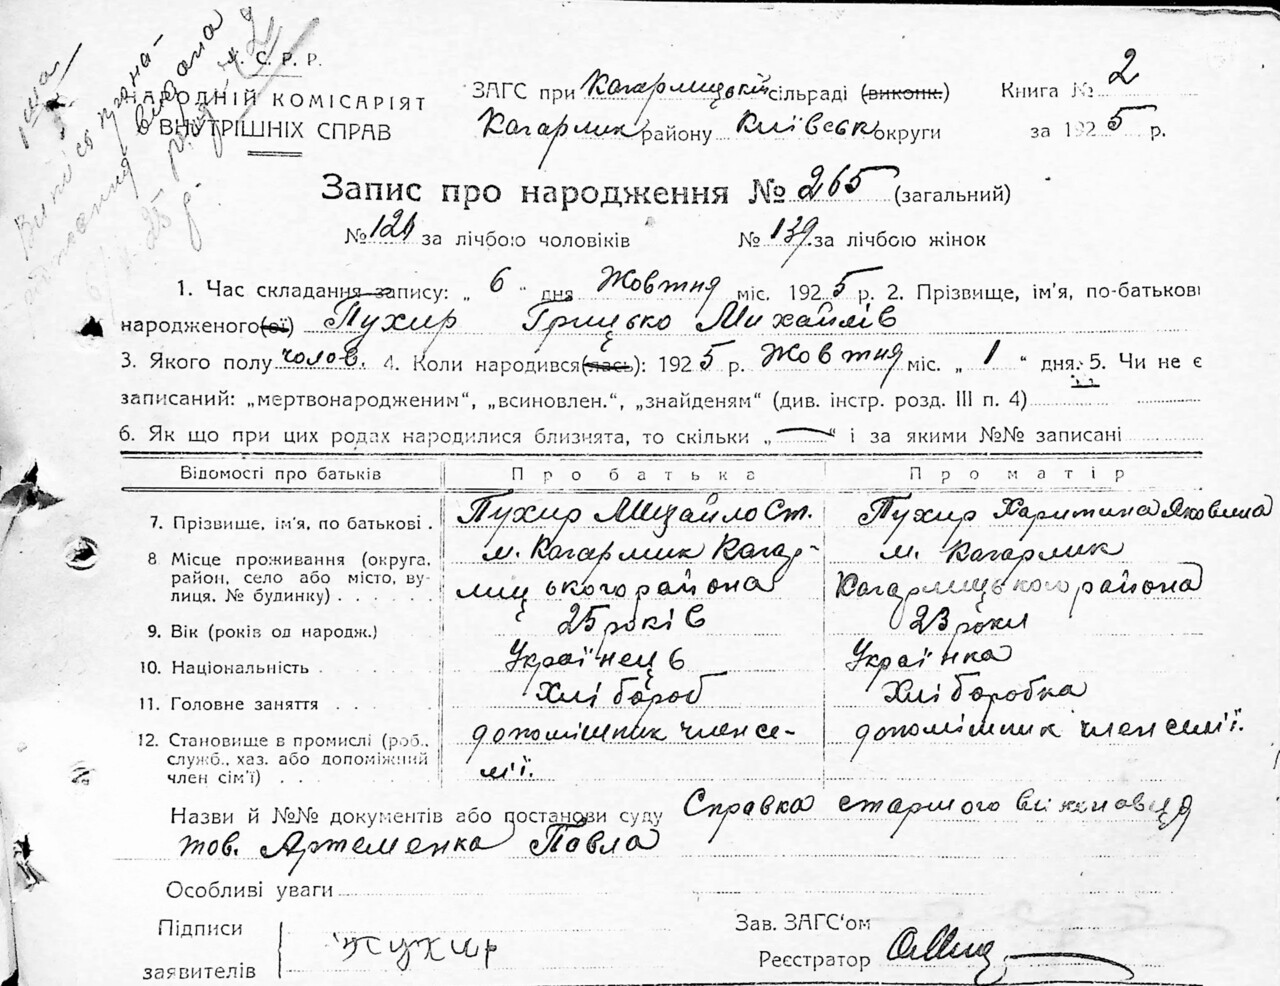 У. С. Р. Р.
НАРОДНІЙ КОМІСАРІЯТ
ВНУТРІШНІХ СПРАВ
ЗАГС при Кагарлицькій сільраді (виконк.)
Кагарлик району Київськ округи
Книга № 2
за 1925 р.
Запис про народження № 265 (загальний)
№ 126 за лічбою чоловіків № 139 за лічбою жінок
1. Час складання запису: „ 6 “ дня Жовтня міс. 1925 р. 2. Прізвище, ім'я, по-батькові
народженого(ої) Пухир Грицько Михайлів
3. Якого полу чолов. 4. Коли народився(лась): 1925 р. Жовтня міс. „ 1 “ дня. 5. Чи не є
записаний: „мертвонародженим“, „всиновлен.“, „знайденям“ (див. інстр. розд. III п. 4)
6. Як що при цих родах народилися близнята, то скільки „ — “ і за якими №№ записані
Відомості про батьків Про батька Про матір
7. Прізвище, ім'я, по батькові . Пухир Михайло Ст. Пухир Харитина Яковлна
8 Місце проживання (округа, м. Кагарлик Кагар- м. Кагарлик
район, село або місто, ву- лицького района Кагарлицького района
лиця, № будинку) . . . . .
9. Вік (років од народж.) 25 років 23 роки
10. Національність . Українець Українка
11. Головне заняття . . . . Хлібороб Хліборобка
12. Становище в промислі (роб., допомішник член се- допомішник член сем'ї.
служб., хаз. або допоміжний м'ї.
член сім'ї) . .
Назви й №№ документів або постанови суду Справка старшого виконавця
тов. Артеменка Павла
Особливі уваги
Підписи
заявителів
Пухир
Зав. ЗАГС'ом
Реєстратор